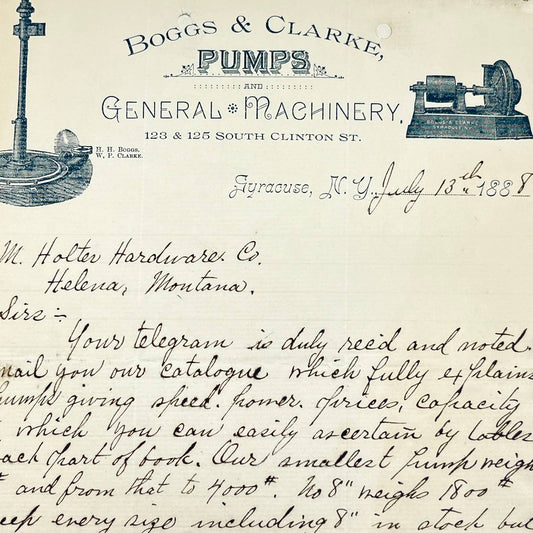 BOGGS & CLARKE,
PUMPS
AND
GENERAL MACHINERY,
123 & 125 SOUTH CLINTON ST.
H. H. BOGGS.
W. P. CLARKE.
Syracuse, N. Y., July 13th 1888
M. Holter Hardware Co.
Helena, Montana.
Sirs :-
Your telegram is duly recd and noted.
mail you our catalogue which fully explains
pumps giving speed. power. prices, capacity
which you can easily ascertain by tables
each part of book. Our smallest pump weigh
# and from that to 4000#. No 8" weighs 1800#
keep every size including 8" in stock but